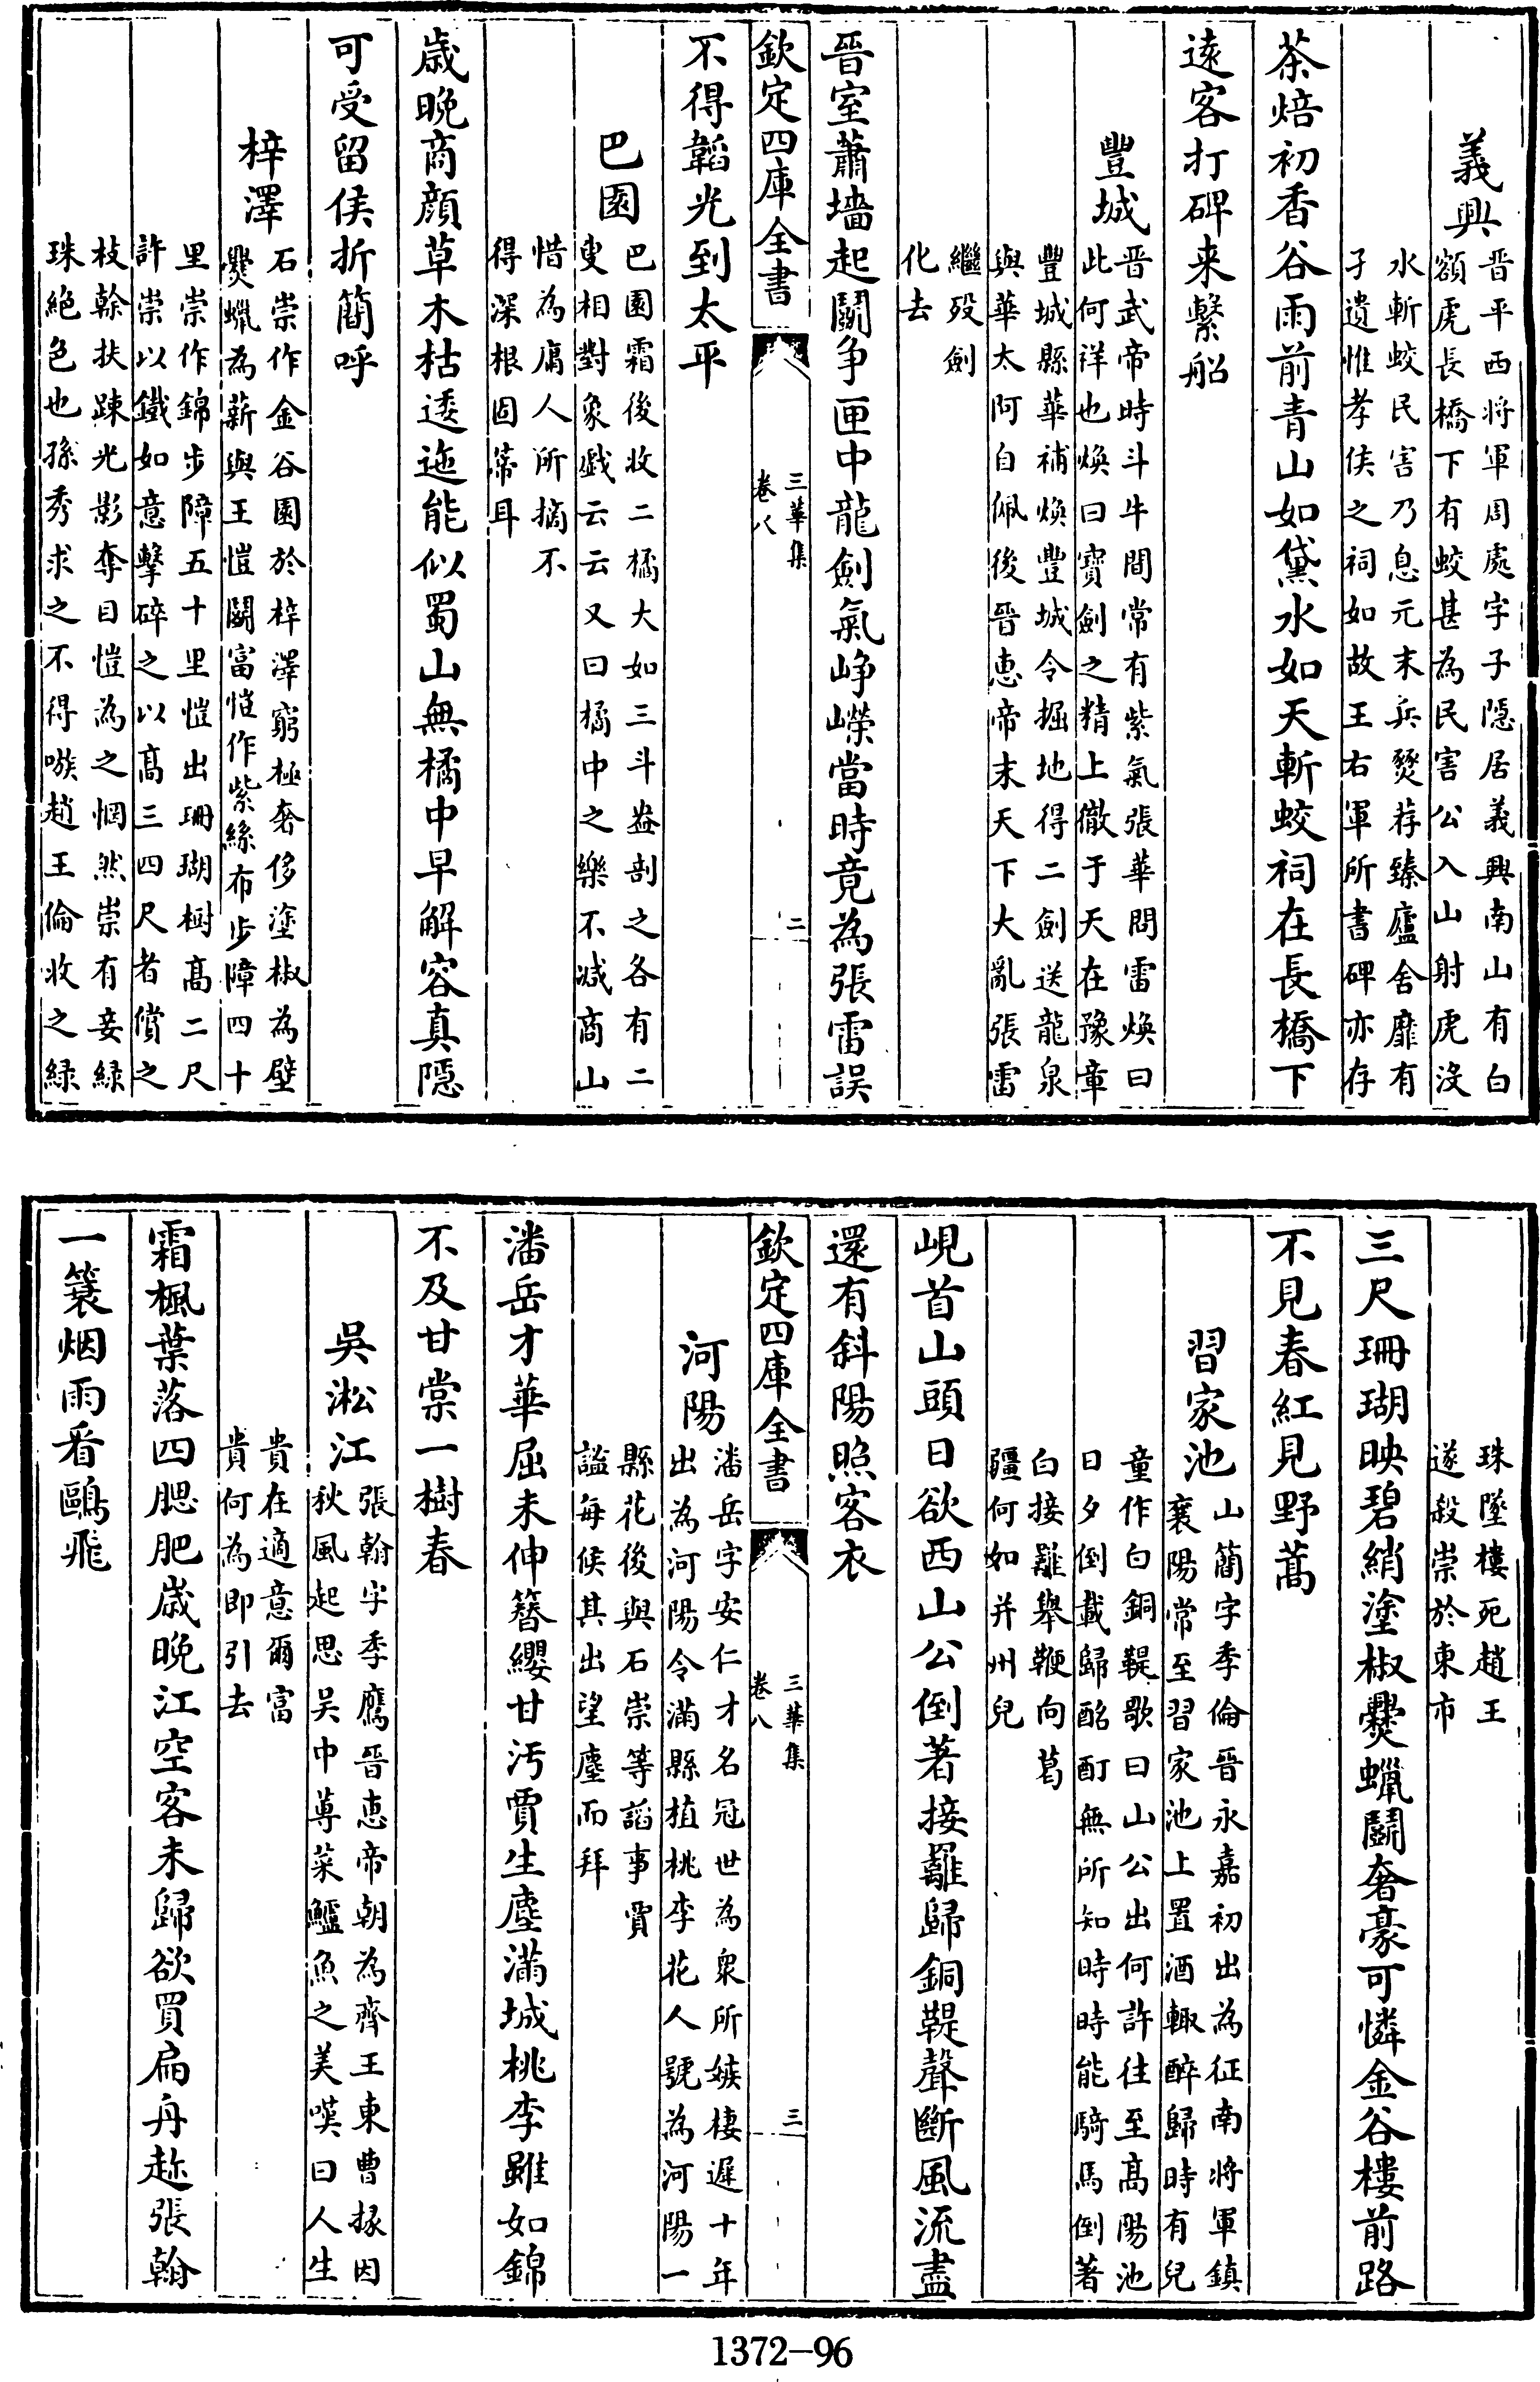 義興
晋平西将軍周處字子隠居義興南山有白
額虎長橋下有蛟甚為民害公入山射虎沒
水斬蛟民害乃息元末兵燹荐臻廬舍靡有
孑遺惟孝侯之祠如故王右軍所書碑亦存
茶焙初香谷雨前青山如黛水如天斬蛟祠在長橋下
逺客打碑来繫船
豐城
晋武帝時斗牛間常有紫氣張華問雷煥曰
此何祥也煥曰寶劍之精上徹于天在豫章
豐城縣華補煥豐城令掘地得二劍送龍泉
與華太阿自佩後晋恵帝末天下大亂張雷
繼殁劍
化去
晉室蕭墻起鬬争匣中龍劍氣崢嶸當時竟為張雷誤
欽定四庫全書
三華集
卷八
二
不得韜光到太平
巴園
巴園霜後收二橘大如三斗盎剖之各有二
叟相對象戯云云又曰橘中之樂不減商山
惜為庸人所摘不
得深根固蒂耳
歳晚商顔草木枯逶迤能似蜀山無橘中早解容真隠
可受留侯折簡呼
梓澤
石崇作金谷園於梓澤窮極奢侈塗椒為壁
爨蠟為薪與王愷鬬富愷作紫絲布步障四十
里崇作錦步障五十里愷出珊瑚樹髙二尺
許崇以鐵如意擊碎之以髙三四尺者償之
枝榦扶踈光影奪目愷為之惘然崇有妾緑
珠絶色也孫秀求之不得嗾趙王倫收之緑
珠墜樓死趙王
遂殺崇於東市
三尺珊瑚映碧綃塗椒爨蠟鬬奢豪可憐金谷樓前路
不見春紅見野蒿
習家池
山簡字季倫晋永嘉初出為征南将軍鎮
襄陽常至習家池上置酒輙醉歸時有兒
童作白銅鞮歌曰山公出何許往至髙陽池
日夕倒載歸酩酊無所知時時能騎馬倒著
白接䍦舉鞭向葛
疆何如并州兒
峴首山頭日欲西山公倒著接䍦歸銅鞮聲斷風流盡
還有斜陽照客衣
欽定四庫全書
三華集
卷八
三
河陽
潘岳字安仁才名冠世為衆所嫉棲遲十年
出為河陽令滿縣植桃李花人號為河陽一
縣花後與石崇等謟事賈
謐每候其出望塵而拜
潘岳才華屈未伸簪纓甘汚賈生塵滿城桃李雖如錦
不及甘棠一樹春
吳淞江
張翰字季鷹晋恵帝朝為齊王東曹掾因
秋風起思吴中蓴菜鱸魚之美嘆曰人生
貴在適意爾富
貴何為即引去
霜楓葉落四腮肥歳晚江空客未歸欲買扁舟趂張翰
一簑烟雨看鷗飛
1372-96